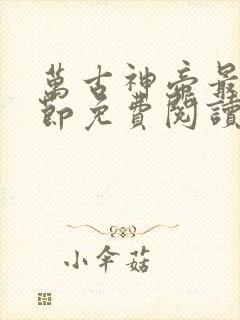 萬古神帝最
節免費閱讀
小傘菇